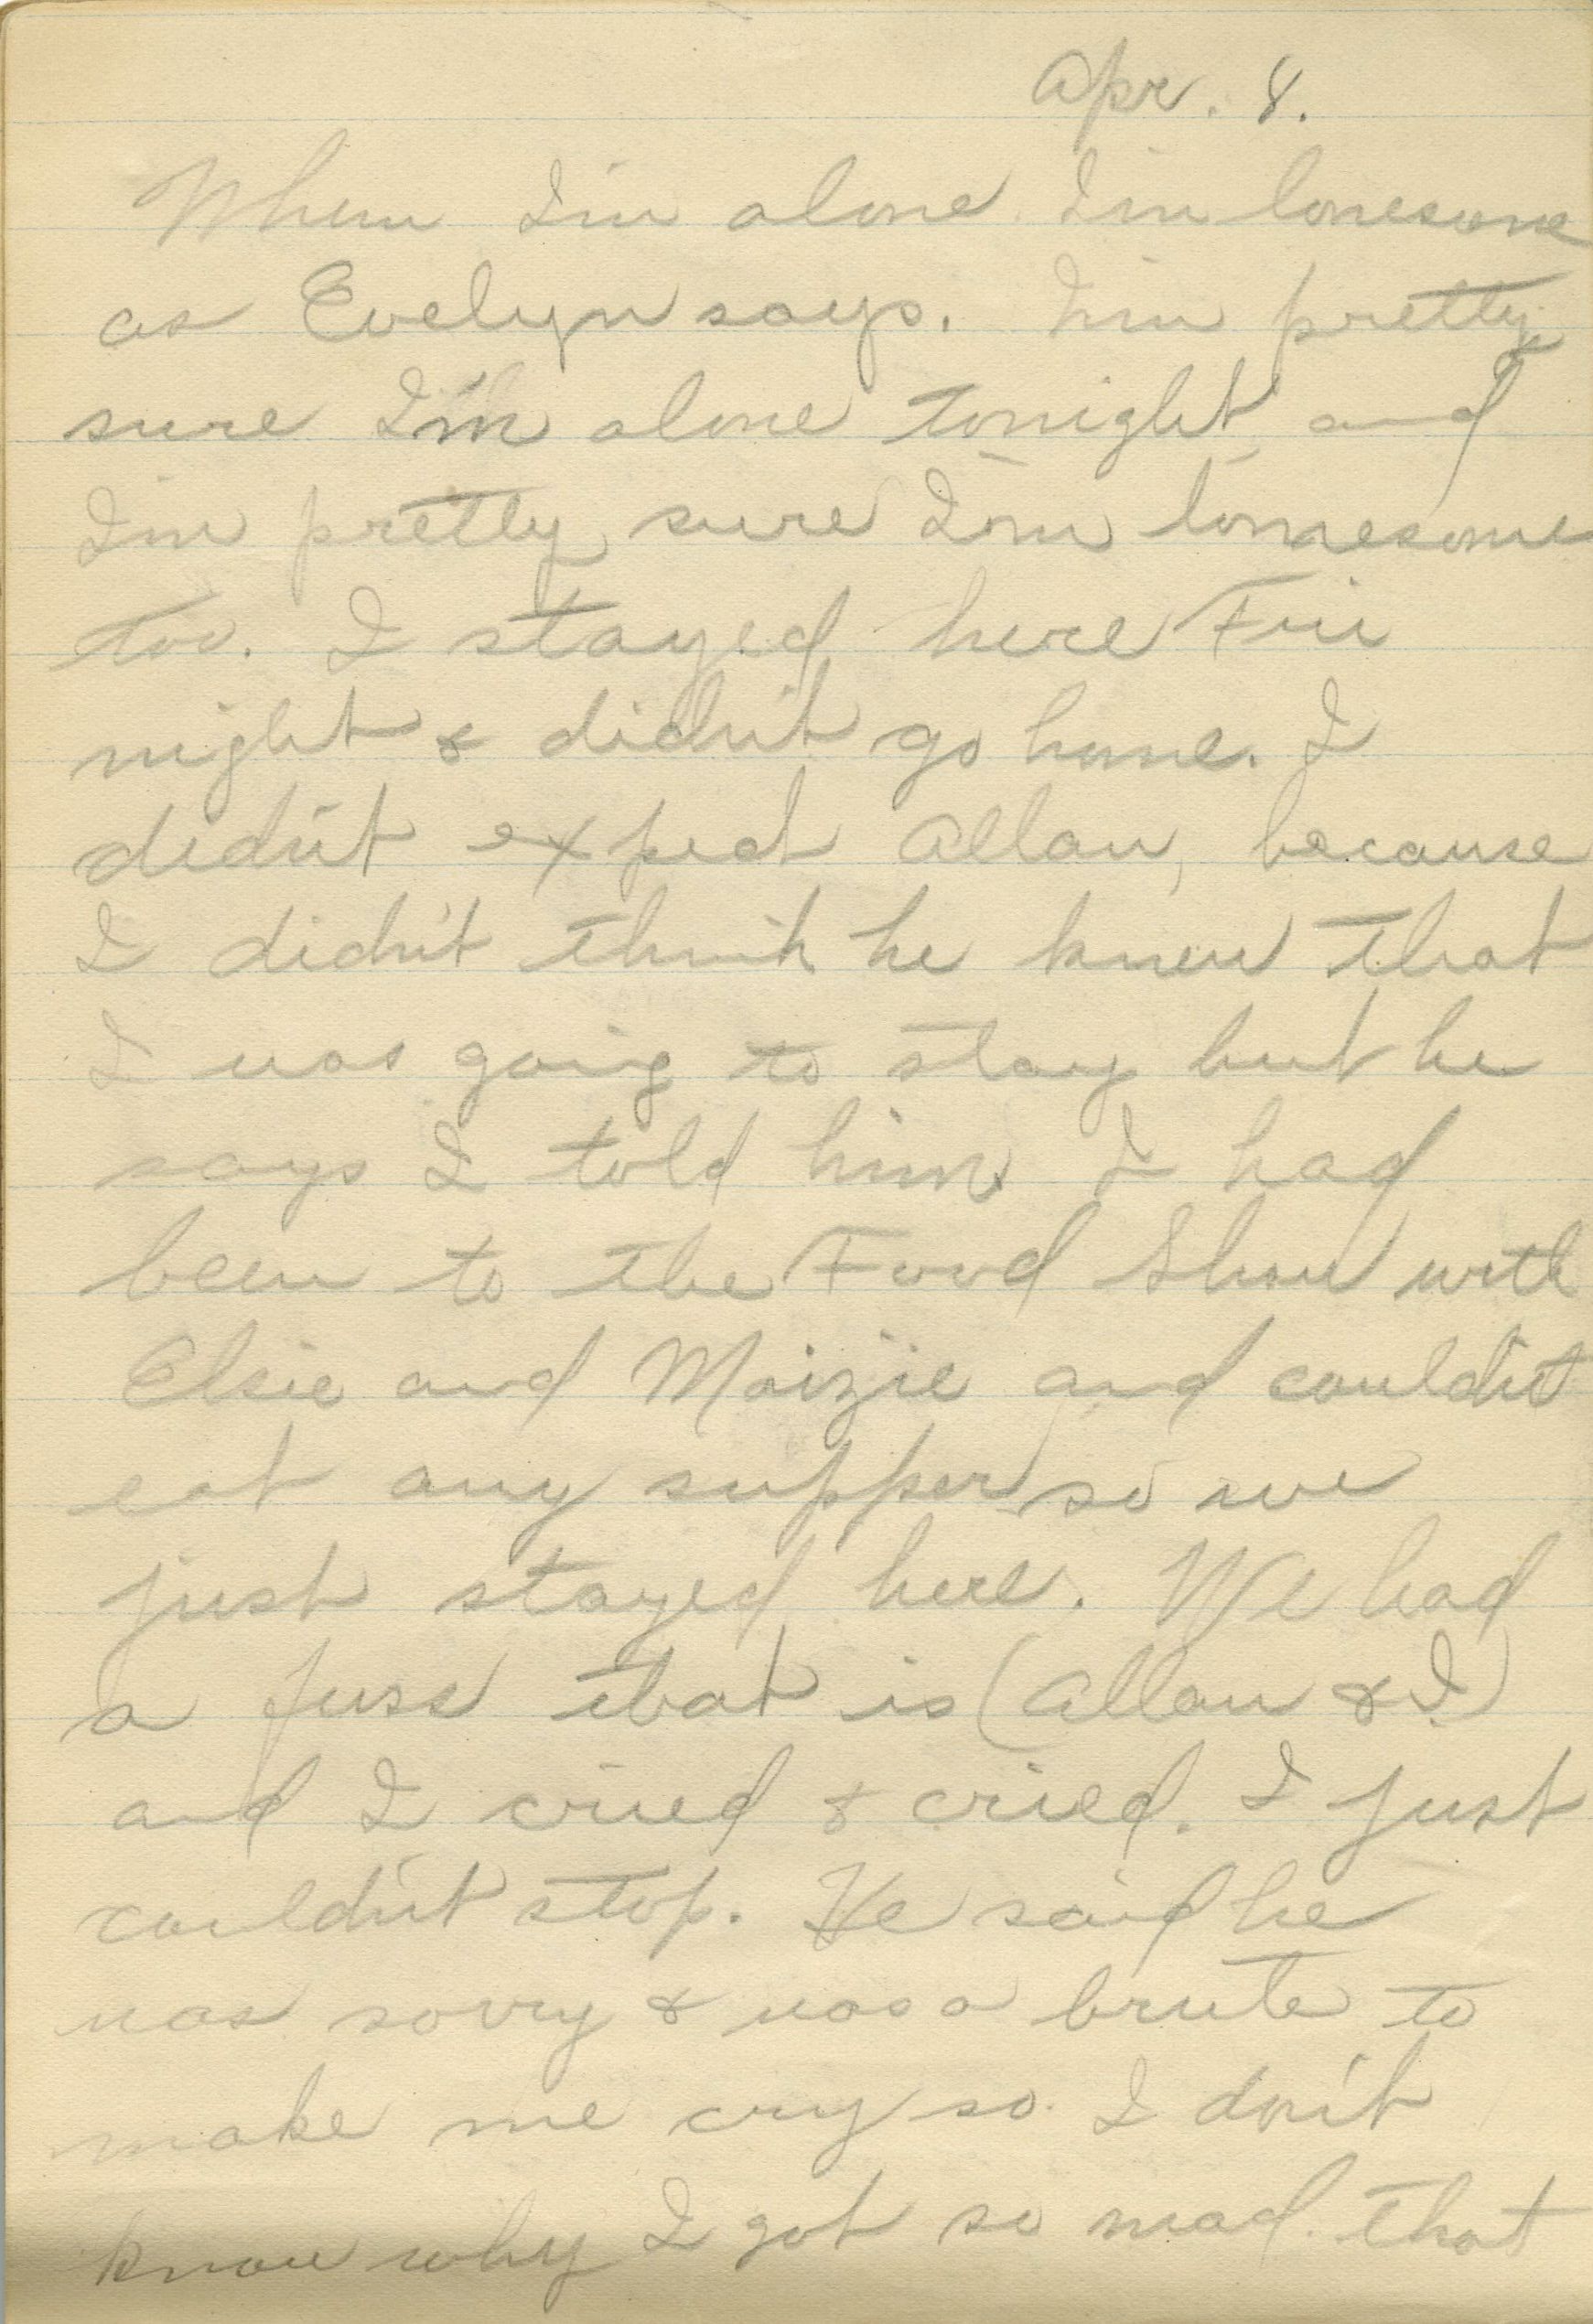 Apr. 8.
When I'm alone I'm lonesome
as Evelyn says. I'm pretty
sure I'm alone tonight and
I'm pretty sure I'm lonesome
too. I stayed here Fri
night & didn't go home. I
didn't expect Allan, because
I didn't think he knew that
I was going to stay but he
says I told him. I had
been to the Food Show with
Elsie and Maizie and couldn't
eat any supper so we
just stayed here. We had
a fuss that is (Allan & I)
and I cried & cried. I just
couldn't stop. He said he
was sorry & was a brute to
make me cry so. I don't
know why I got so mad. That